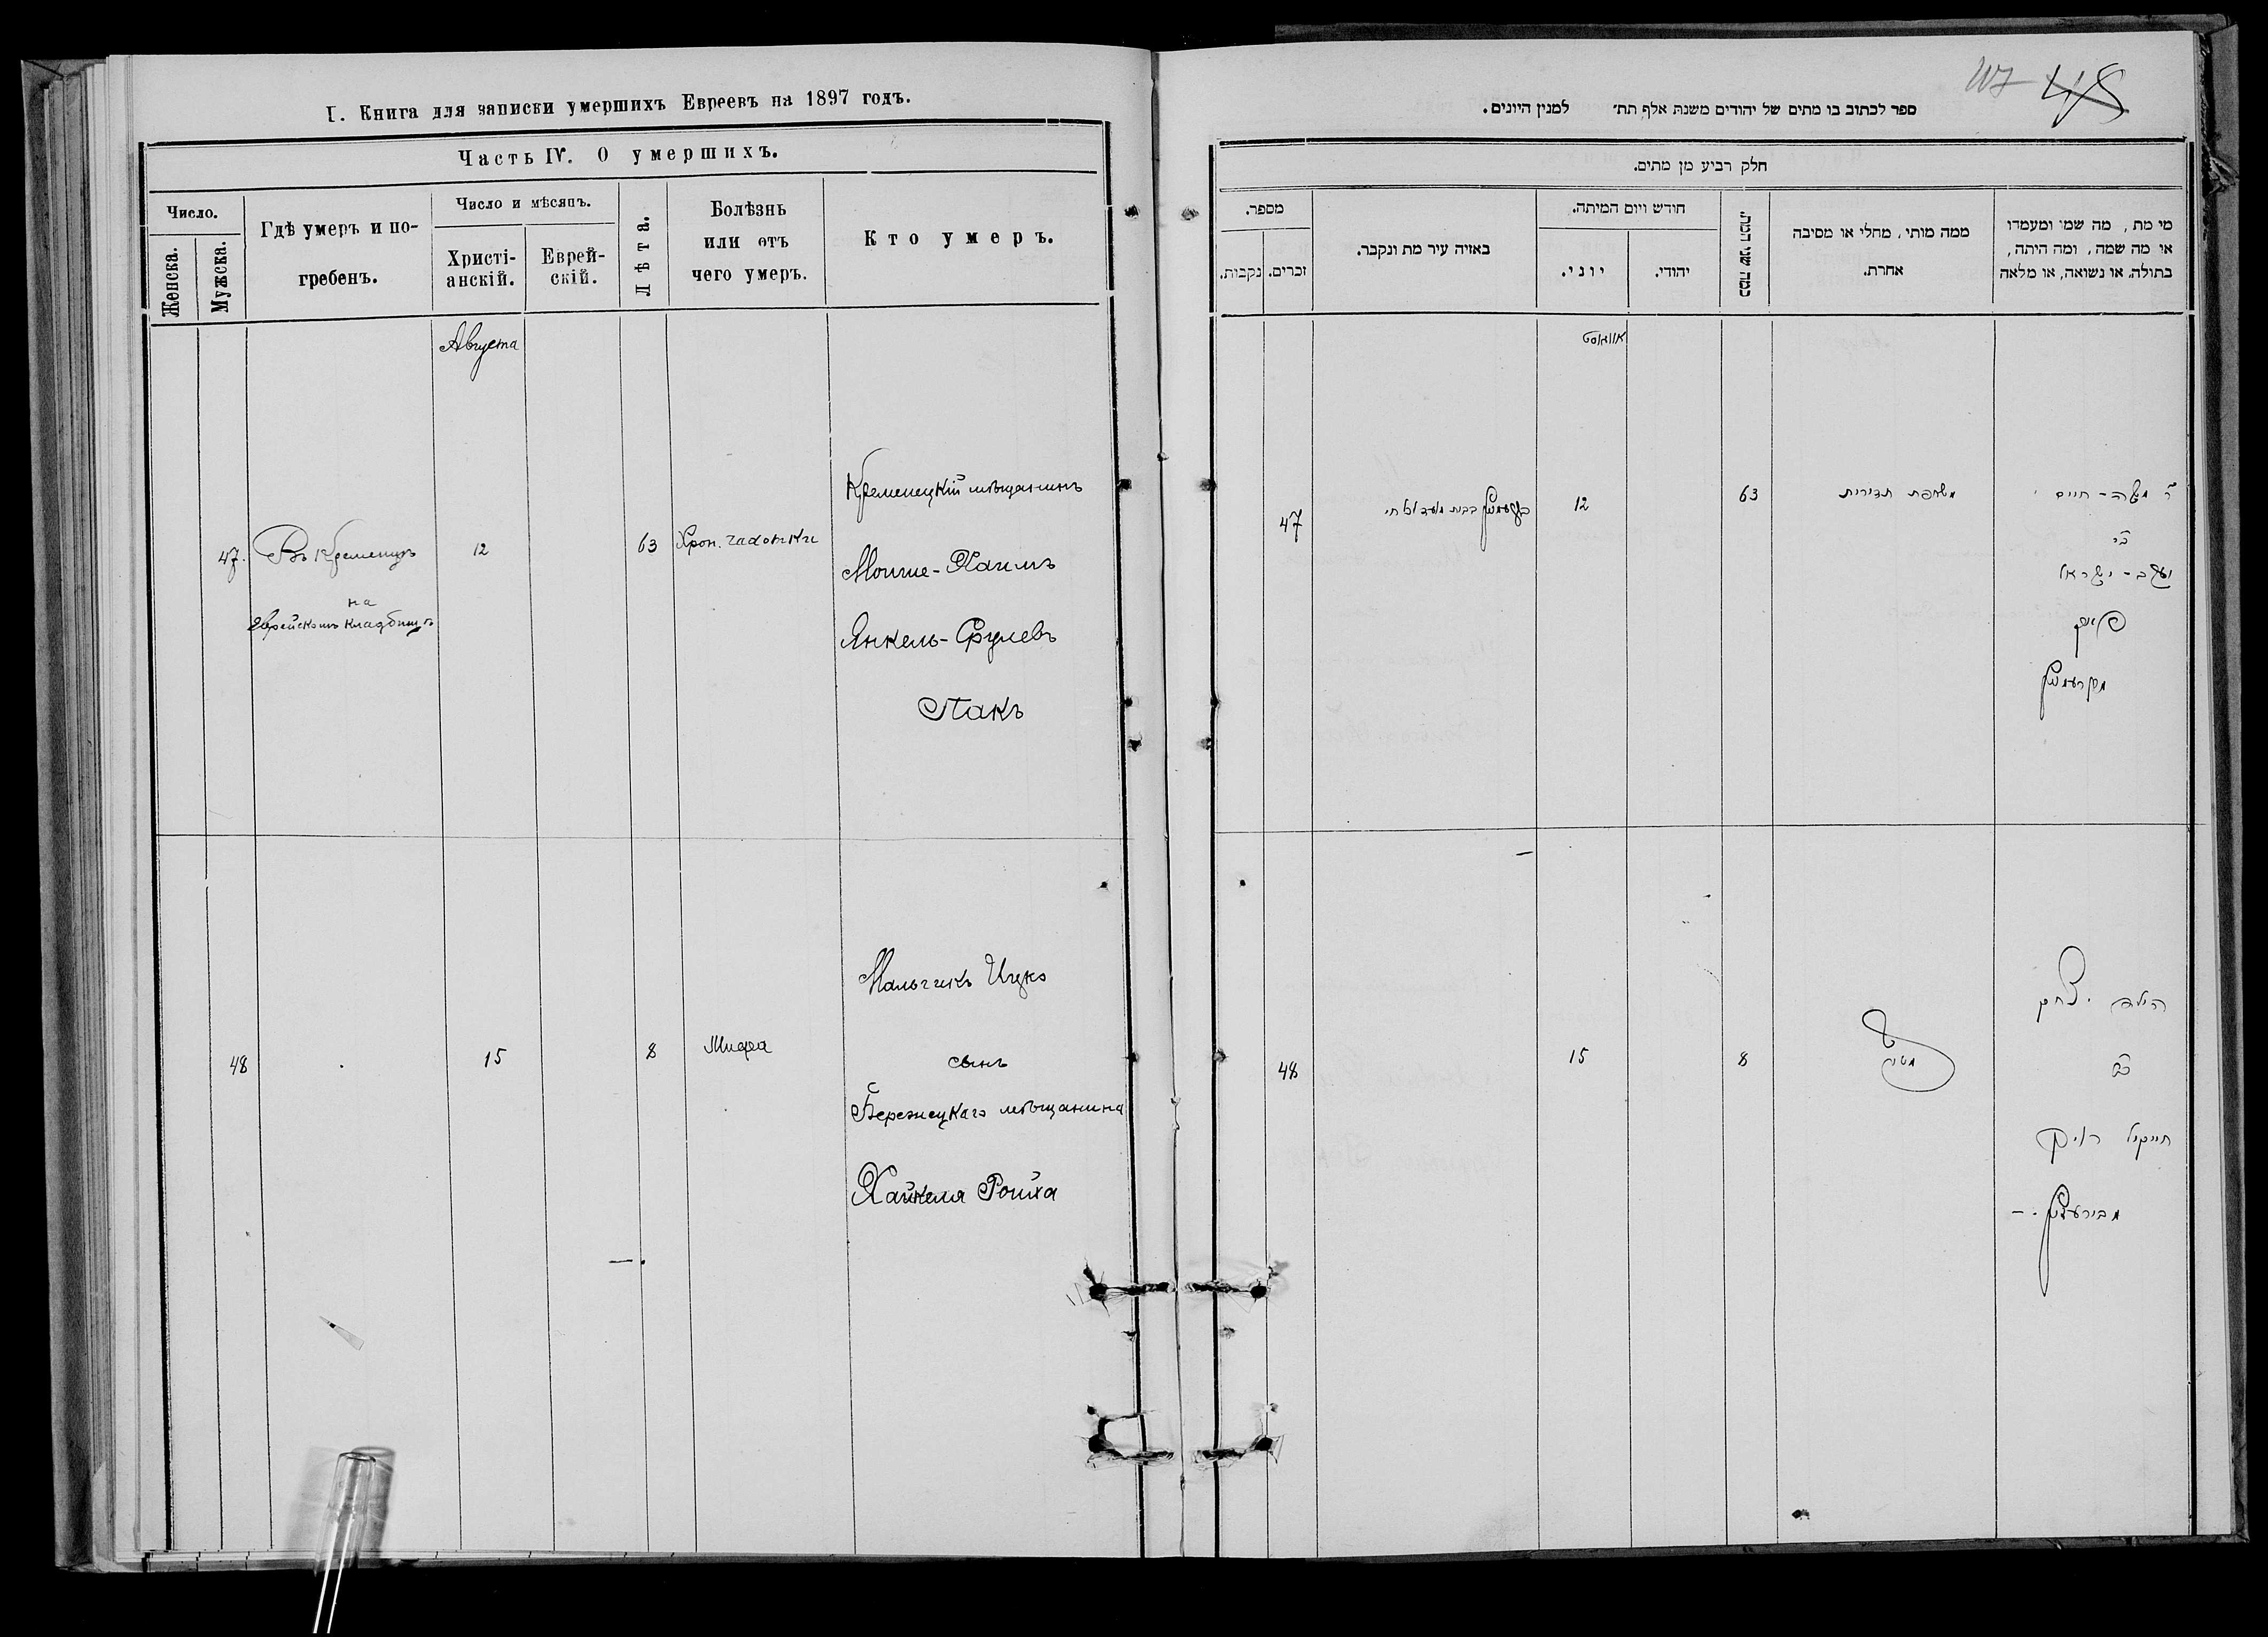 I. Книга для записки умершихъ Евреевъ на 1897 годъ.
Часть IV. О умершихъ.
Число.
Женска.
Мужска.
Гдѣ умеръ и по-
гребенъ.
Число и мѣсяцъ.
Христі-
анскій.
Еврей-
скій.
Лѣта.
Болѣзнь
или отъ
чего умеръ.
Кто умеръ.
Августа
47.
Въ Кременцѣ
на
Еврейскомъ кладбищѣ
12
63
Хрон.
Кременецкій мѣщанинъ
Мошке-Хаимъ
Янкель-Срулевъ
Пакъ
48
15
8
Мальчикъ Ицко
сынъ
Бережецкаго мѣщанина
Хайкеля Ройха
48
ספר לכתוב בו מתים של יהודים משנת אלף תת׳ למנין היונים.
חלק רביע מן מתים.
מספר.
נקבות.
זכרים.
באזיה עיר מת ונקבר.
חודש ויום המיתה.
יוני.
יהודי.
כמה שני המת.
ממה מותי, מחלי או מסיבה
אחרת.
מי מת, מה שמו ומעמדו
או מה שמה, ומה היתה,
בתולה, או נשואה, או מלאה
אוגוסט
47
12
63
ר׳ משה-חיים
ב״ר
יעקב-ישראל
פאק
48
15
8
הילד יצחק
חייקיל רויך